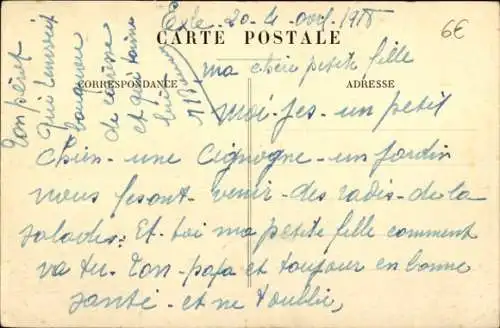 20-4-
6€
CARTE POSTALE
CORRESPONDANCE
ADRESSE
ma petite fille
moi-jes-un petit
chien-une Cignogne-un jardin
nous fesont-venir-des radis-de la
salades: Et-toi ma petite fille comment
va tu-ton-papa et toujour en bonne
santé-et ne t'oublie,
Ton père
qui
de
et qui t'aime